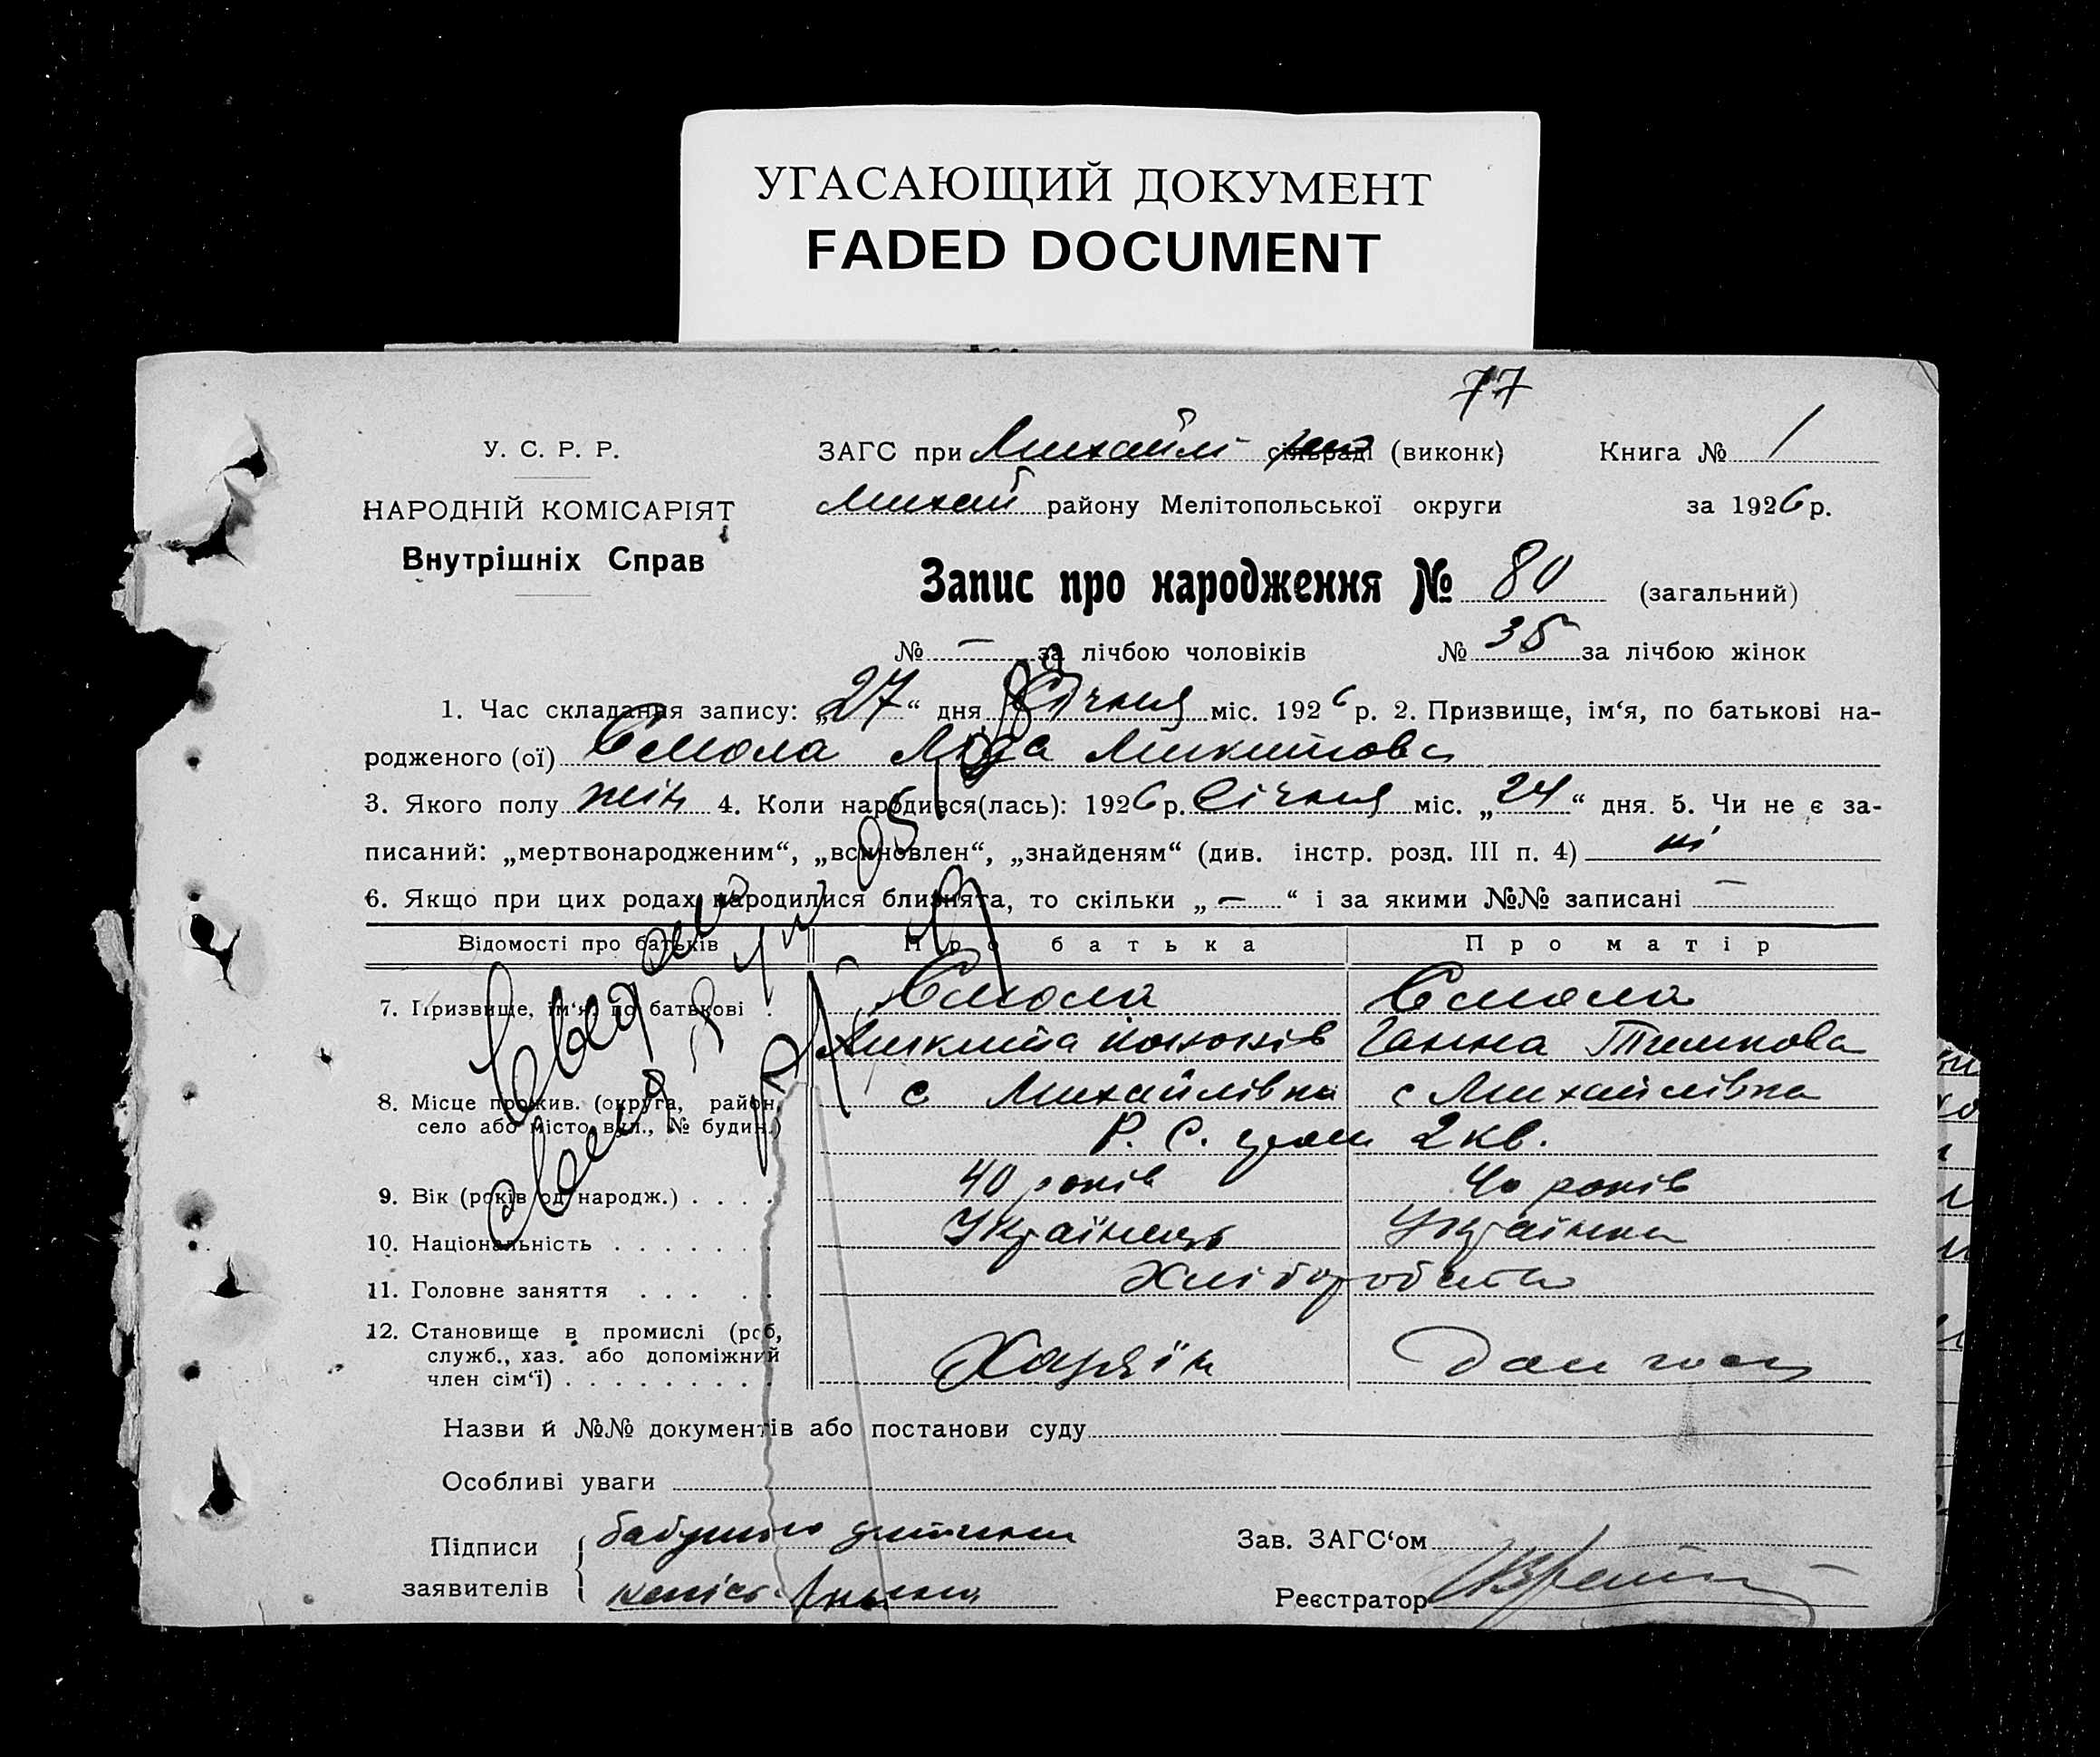 УГАСАЮЩИЙ ДОКУМЕНТ
FADED DOCUMENT
77
У. С. Р. Р.
НАРОДНІЙ КОМІСАРІЯТ
Внутрішніх Справ
ЗАГС при Михайлі сільраді (виконк)
Михай району Мелітопольської округи
Книга № 1
за 1926 р.
Запис про народження № 80 (загальний)
№ — за лічбою чоловіків № 35 за лічбою жінок
1. Час складання запису: „27“ дня Січня міс. 1926 р. 2. Призвище, ім‘я, по батькові на-
родженого (ої) Смола Ліда Микитова
3. Якого полу жін 4. Коли народився(лась): 1926 р. Січня міс. „24“ дня. 5. Чи не є за-
писаний: „мертвонародженим“, „всиновлен“, „знайденям“ (див. інстр. розд. III п. 4) ні
6. Якщо при цих родах народилися близнята, то скільки „—“ і за якими №№ записані —
Відомості про батьків Про батька Про матір
7. Призвище, ім‘я, по батькові . Смола Смола
Микита Ганна
8. Місце прожив. (округа, район, с Михайлівка с Михайлівка
село або місто, вул., № будин.) Р. С. 2 кв.
9. Вік (років од народж.) . . . . 40 років 40 років
10. Національність . . . . . . . Українець Українка
11. Головне заняття . . . . . Хлібороб
12. Становище в промислі (роб,
служб., хаз. або допоміжний Хазяїн
член сім‘ї) . . . . . . . . .
Назви й №№ документів або постанови суду
Особливі уваги
Підписи
заявителів
Зав. ЗАГС‘ом
Реєстратор